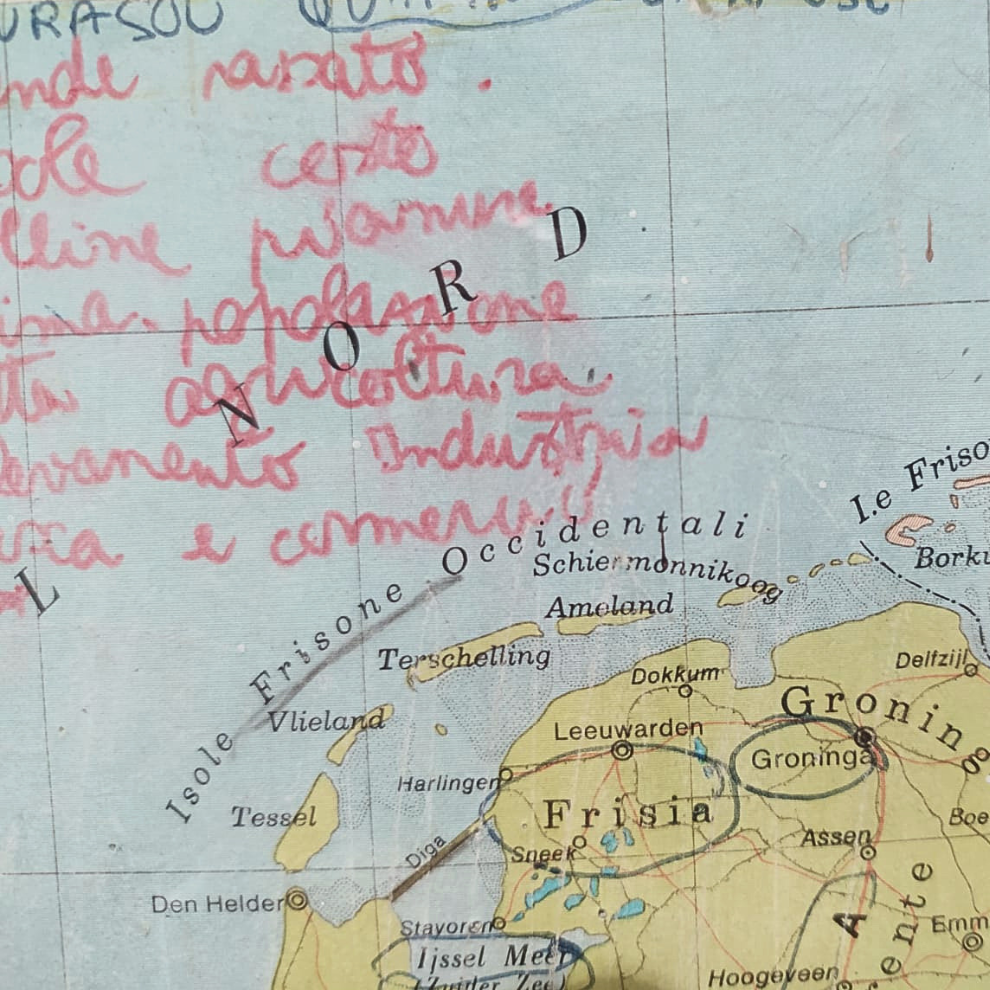 nde rasato.
cesto
lline pianure
ima. popolazione
agricoltura
levamento Industria
e comercio
NORD
L
Isole Frisone Occidentali
Le Friso
Schiermonnikoog
Borku
Ameland
Terschelling
Delfzijl
Dokkum
Gronin
Vlieland
Leeuwarden
Groninga
Harlingen
Tessel
Frisia
Boe
Assen
Diga
Sneek
Den Helder
Stavoren
A
ente
Emm
Ijssel Meer
(Zuider Zee)
Hoogeveen